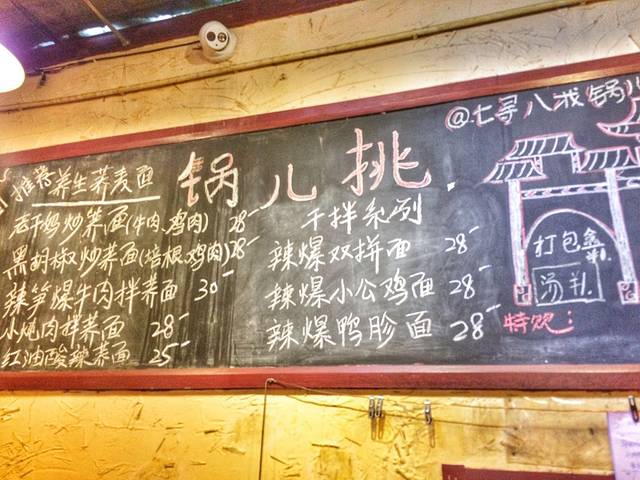 推荐养生荞麦面
老干妈炒荞面(牛肉.鸡肉) 28-
黑胡椒炒荞面(培根.鸡肉)28-
辣笋爆牛肉拌荞面 30-
小炖肉拌荞面 28-
红油酸辣荞面 25-
锅儿挑
干拌系列
辣爆双拼面 28-
辣爆小公鸡面 28-
辣爆鸭胗面 28-
@七寻八找锅儿
打包盒
汤
特色：